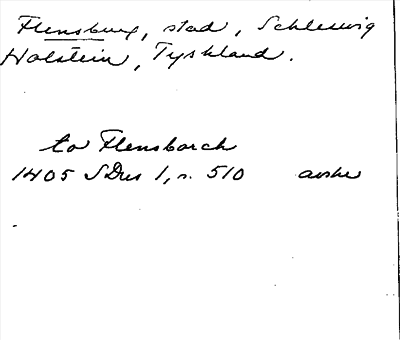 Flensburg, stad, Schleswig
Holstein, Tyskland.
to Flensborch
1405 SDns 1, s. 510 avskr